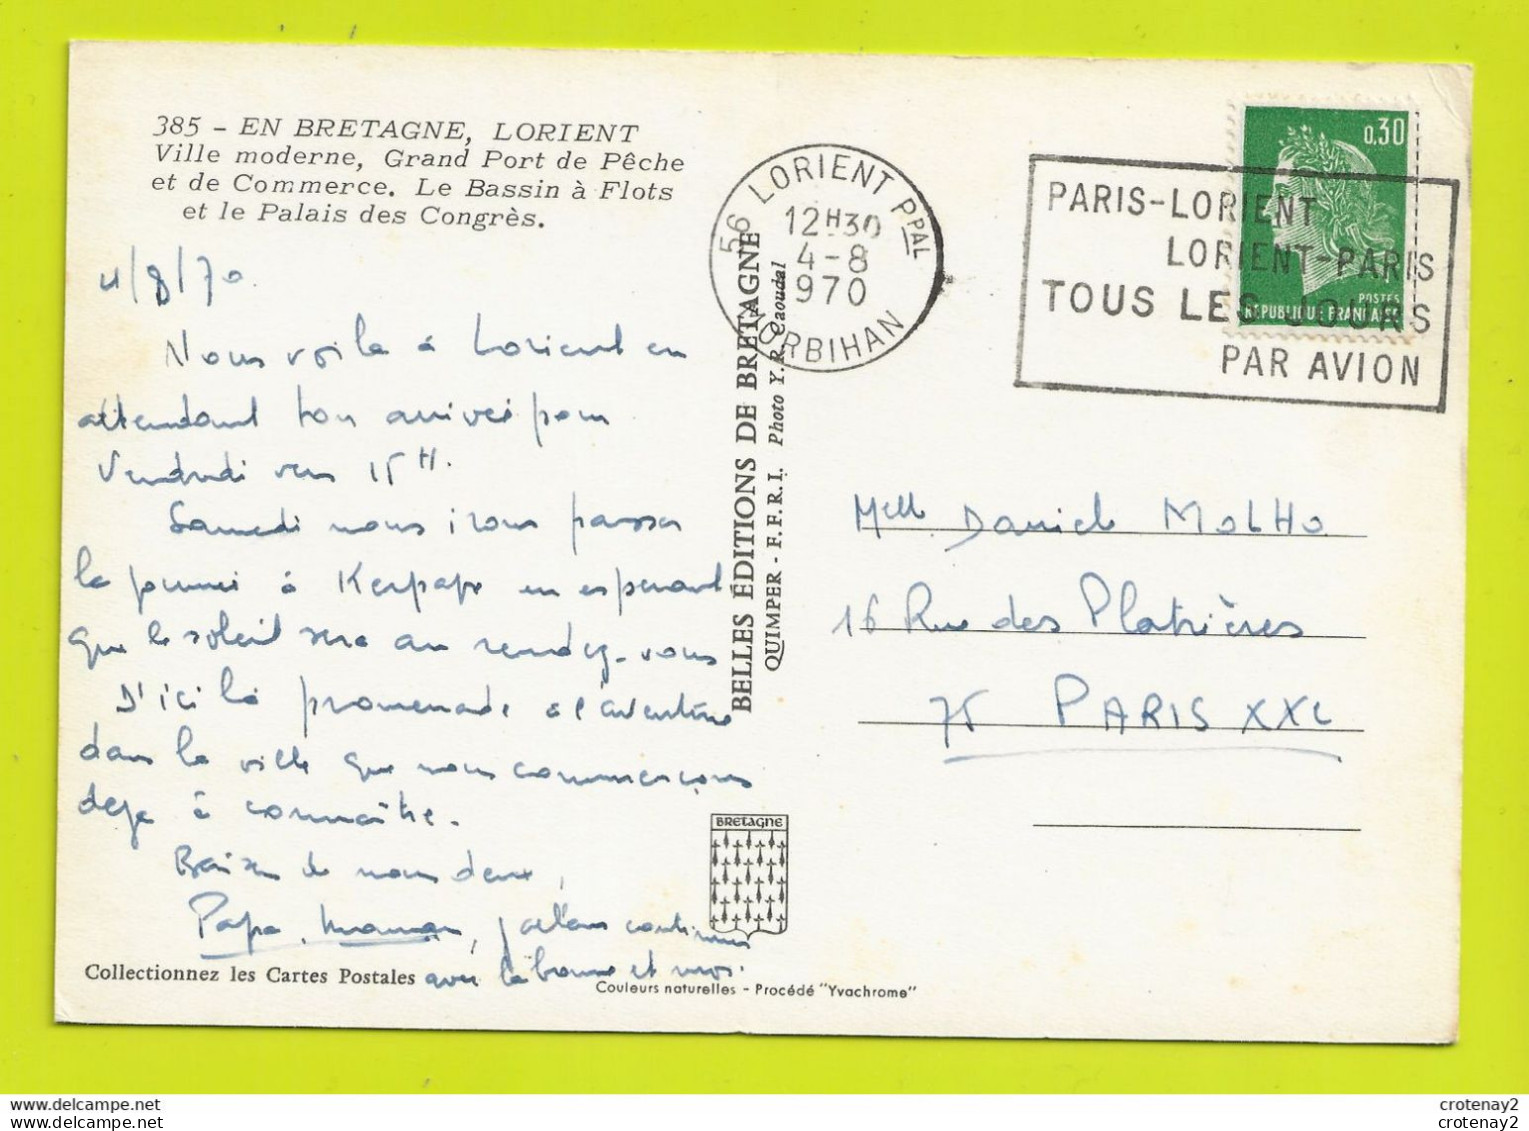 385 - EN BRETAGNE, LORIENT
Ville moderne, Grand Port de Pêche
et de Commerce. Le Bassin à Flots
et le Palais des Congrès.
4/8/70
Nous voila à Lorient en
attendant ton arrivée pour
Vendredi vers 15 H.
Samedi nous irons passer
la journée à Kerpape en esperant
que le soleil sera au rendez-vous
D'ici là promenade à l'aventure
dans la ville que nous commençons
deja à connaître.
Baisers de nous deux,
Papa, maman,
avec la
Collectionnez les Cartes Postales
BELLES ÉDITIONS DE BRETAGNE
QUIMPER - F.F.R.I. Photo Y.R. Caoudal
BRETAGNE
Couleurs naturelles - Procédé "Yvachrome"
56 LORIENT PPAL
12H30
4-8
970
MORBIHAN
PARIS-LORIENT
LORIENT-PARIS
TOUS LES JOURS
PAR AVION
0,30
POSTES
REPUBLIQUE FRANCAISE
Melle Daniele MOLHO
16 Rue des Platrières
75 PARIS XXe
crotenay2
crotenay2